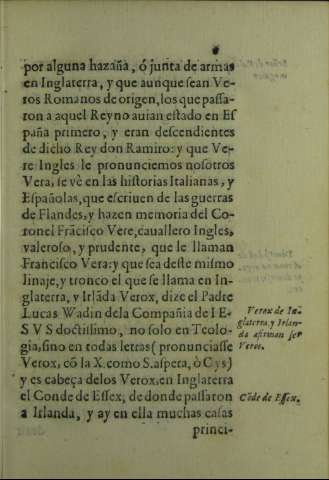 por alguna hazaña, ó junta de armas
en Inglaterra, y que aunque ſean Ve-
ros Romanos de origen, los que paſſa-
ron a aquel Reyno auian eſtado en Eſ
paña primero, y eran deſcendientes
de dicho Rey don Ramiro: y que Ve-
re Ingles le pronunciemos noſotros
Vera, ſe vè en las hiſtorias Italianas, y
Eſpañolas, que eſcriuen de las guerras
de Flandes, y hazen memoria del Co-
ronel Frãciſco Vere, cauallero Ingles,
valeroſo, y prudente, que le llaman
Franciſco Vera: y que ſea deſte miſmo
linaje, y tronco el que ſe llama en In-
glaterra, y Irlãda Verox, dize el Padre
Lucas Wadin dela Compañia de I E-
S V S doctiſsimo, no ſolo en Teolo-
gia, ſino en todas letras (pronunciaſſe
Verox, cõ la X como S. aſpera, ò Cys)
y es cabeça delos Verox, en Inglaterra
el Conde de Eſſex, de donde paſſaron
a Irlanda, y ay en ella muchas caſas
princi-
Verox de In-
glaterra y Irlan-
da afirman ſer
Veros.
Cõde de Eſſex.